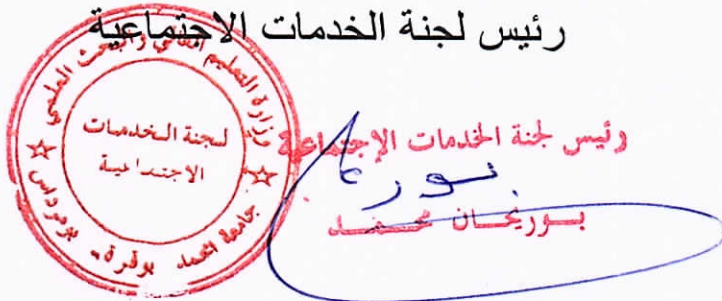 رئيس لجنة الخدمات الاجتماعية
وزارة التعليم العالي والبحث العلمي
لجنة الخدمات
الاجتماعية
جامعة امحمد بوقرة - بومرداس
رئيس لجنة الخدمات الإجتماعية
محمد